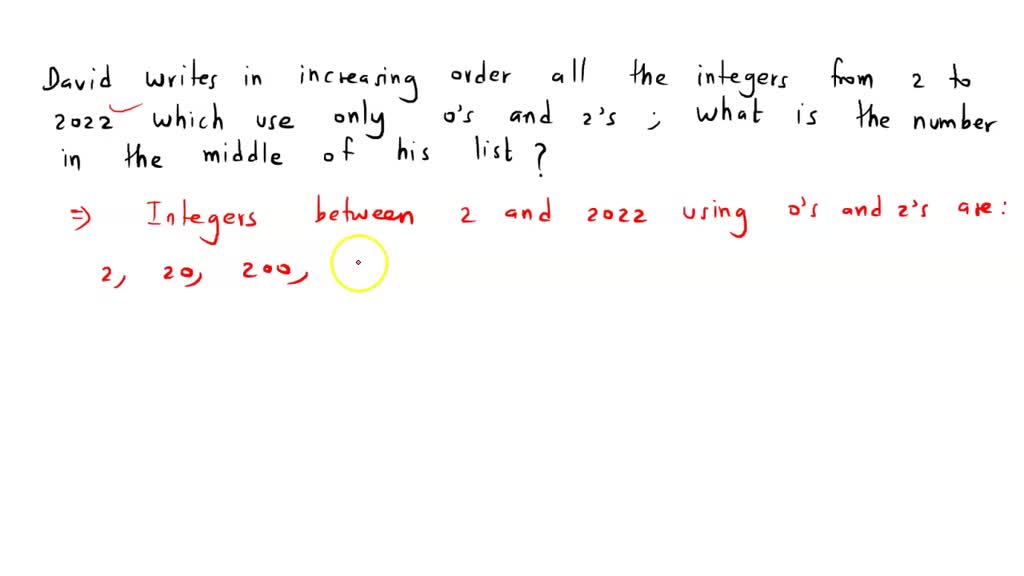 David writes in increasing order all the integers from 2 to
2022 which use only 0's and 2's ; what is the number
in the middle of his list ?
⇒ Integers between 2 and 2022 using 0's and 2's are :
2, 20, 200,